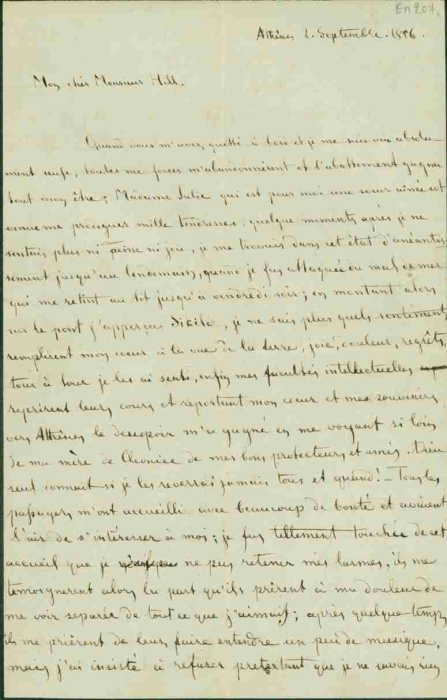 En 207.
Athènes 2. Septembre. 1856.
Mon chér Monsieur Hill.
Quand vous m'avez quitté à bord et je me suis vue absolu-
ment seule, toutes me forces m'abandonnèrent et l'abattement gagna
tout mon être; Madame Julie qui est pour moi une sœur ainée est
venue me prodiguer mille tendresses: quelque moments après je ne
sentais plus ni peine ni joie, je me trouvais dans cet état d'anéantis-
sement jusqu'au lendemain, quand je fus attaquée du mal de mer
qui me retint au lit jusqu'à vendredi soir; en montant alors
sur le pont j'apperçus Sicile, je ne sais plus quels sentiments
remplirent mon cœur à la vue de la terre, joie, douleur, regrèts,
tour à tour je les ai senti, enfin mes facultés intellectuelles
reprirent leurs cours et reportant mon cœur et mes souvenirs
vers Athènes le desespoir m'a gagné en me voyant si loin
de ma mère de Cleonice de mes bons protecteurs et amis. Dieu
seul connait si je les reverrai jamais tous et quand! – Tous les
passagers m'ont accueillie avec beaucoup de bonté et avaient
l'air de s'intéresser à moi; je fus tellement touchée de cet
accueil que je ne pus retener mes larmes, ils me
temoignerent alors la part qu'ils prirent à ma douleur de
me voir separée de tout ce que j'aimais; après quelque temps
ils me prièrent de leur faire entendre un peu de musique,
mais j'ai insisté à refuser pretextant que je ne savais rien